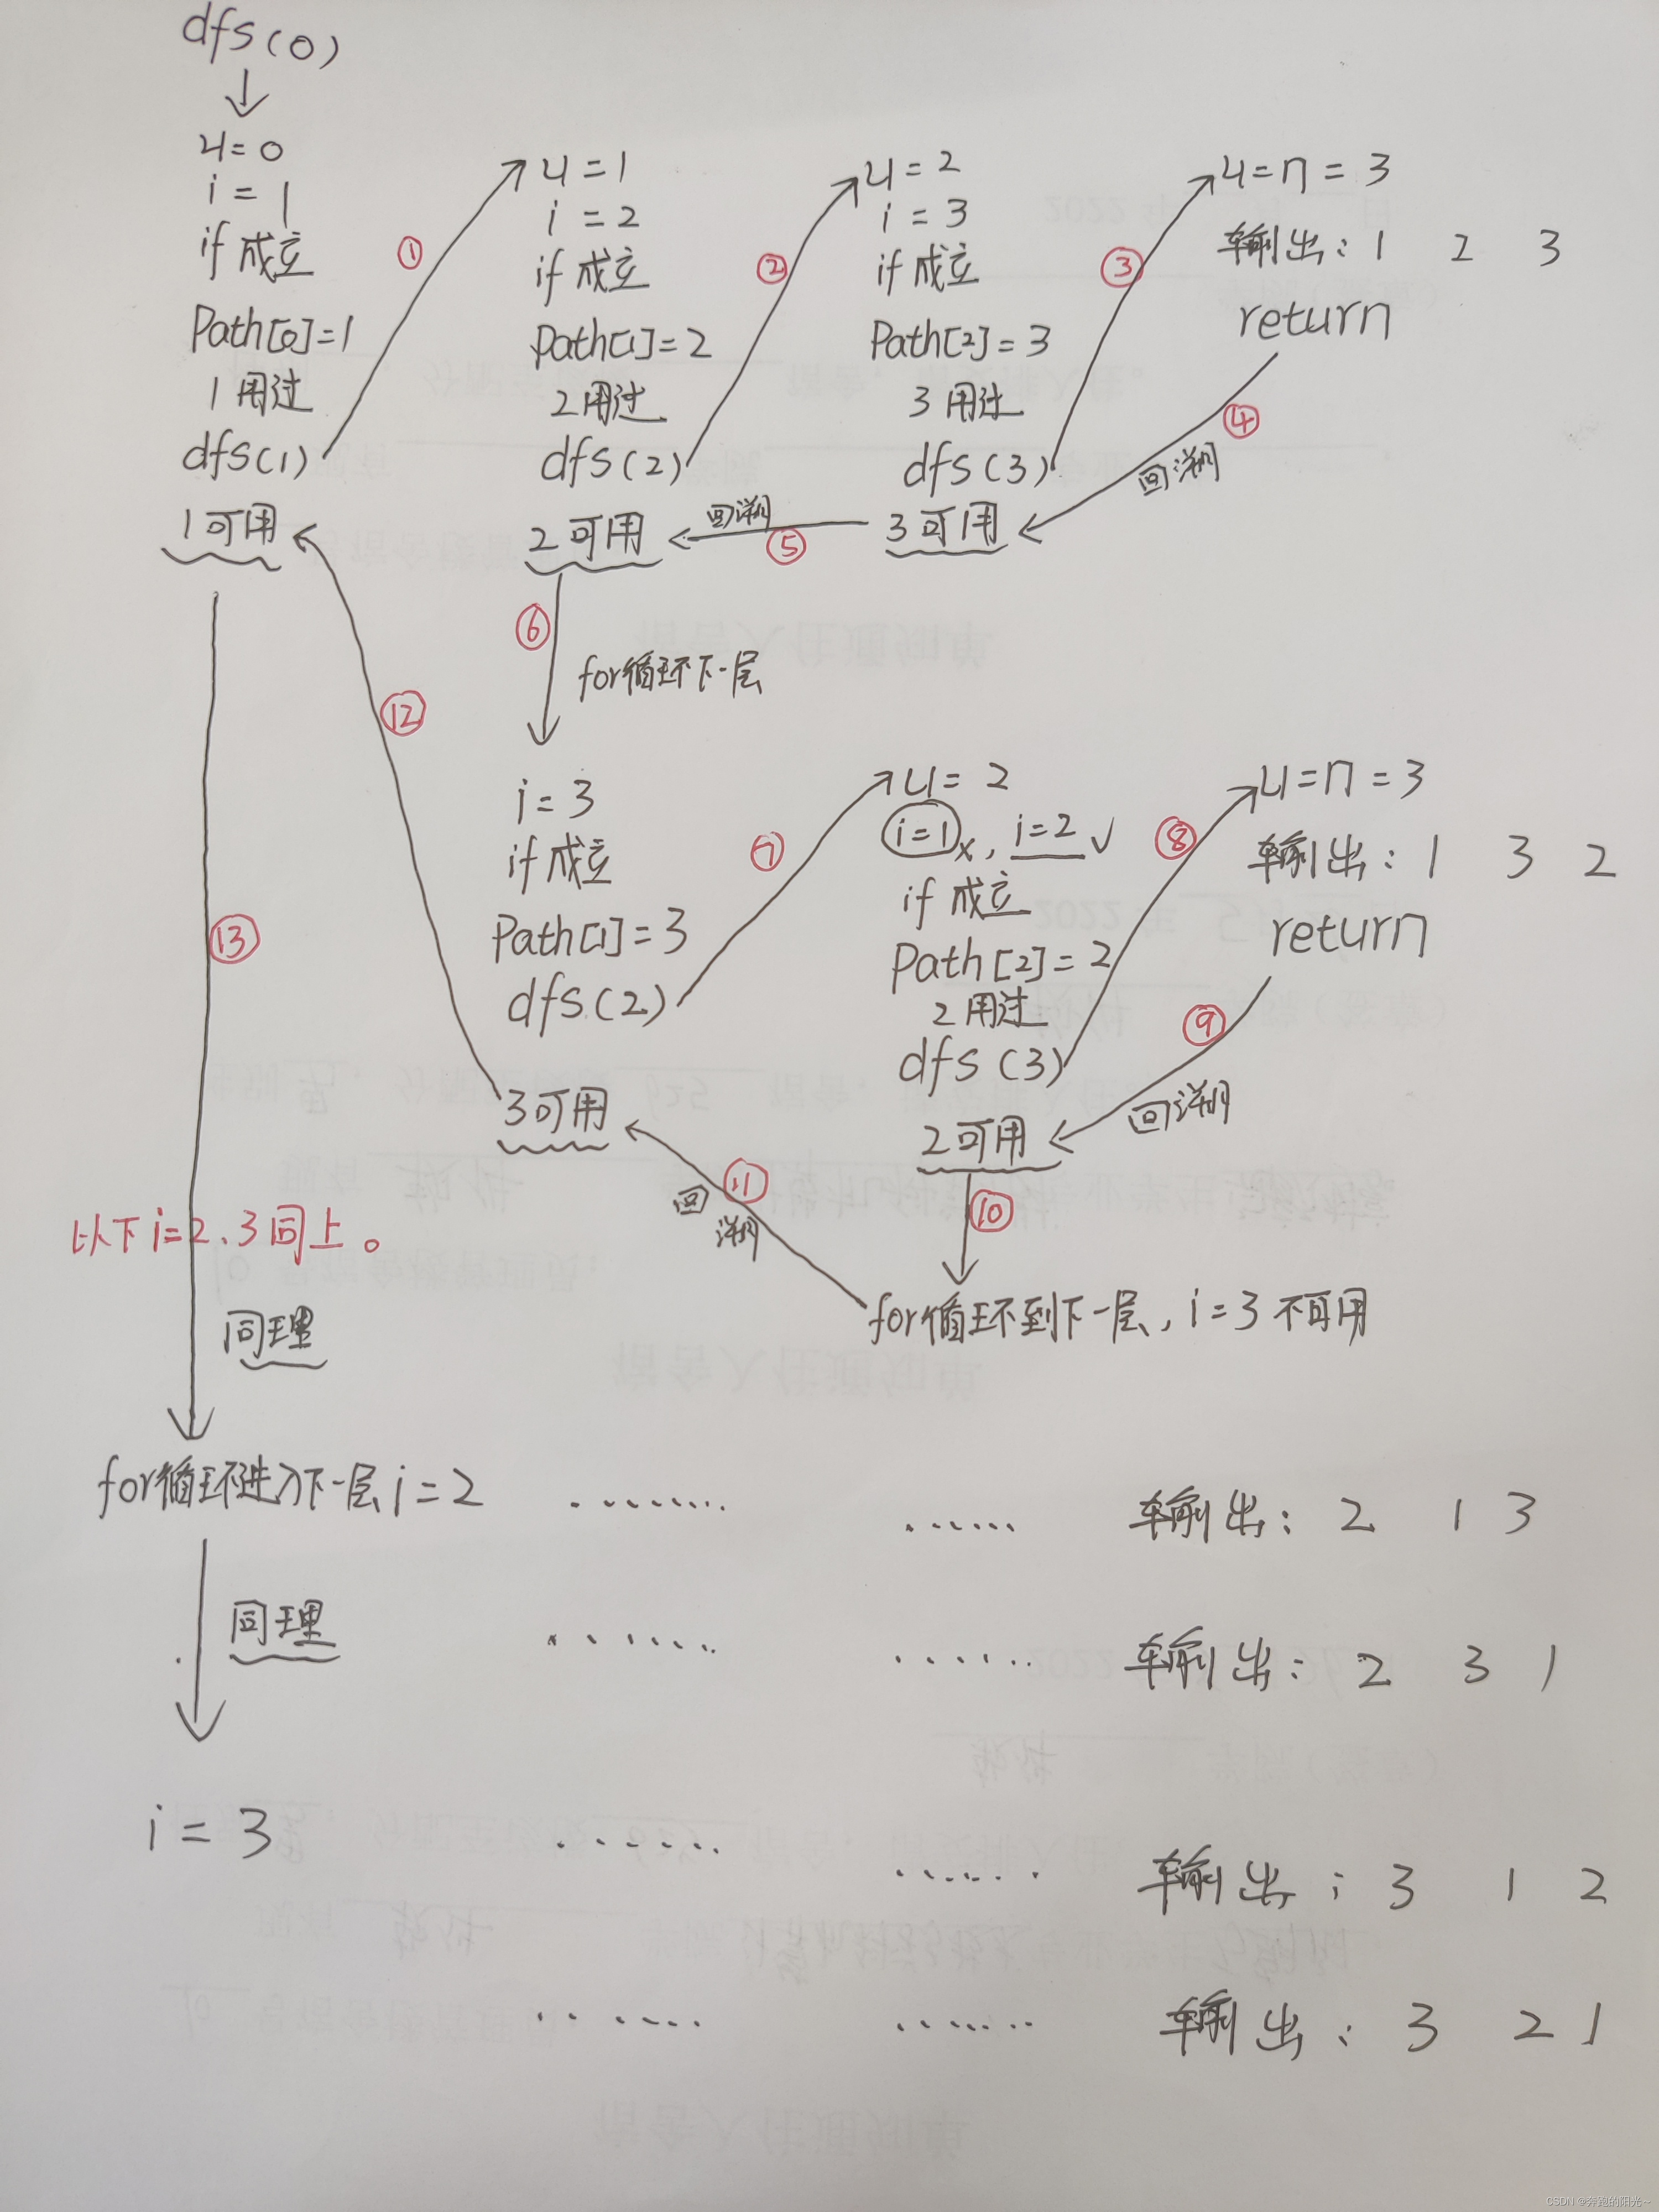 dfs(0)
u=0
i=1
if 成立
Path[0]=1
1用过
dfs(1)
1可用
①
u=1
i=2
if 成立
Path[1]=2
2用过
dfs(2)
2可用
②
u=2
i=3
if 成立
Path[2]=3
3用过
dfs(3)
3可用
③
u=n=3
输出:1 2 3
return
④
回溯
回溯
⑤
⑥
for循环下一层
i=3
if 成立
Path[1]=3
dfs(2)
3可用
⑦
u=2
i=1 x, i=2 √
if 成立
Path[2]=2
2用过
dfs(3)
2可用
⑧
u=n=3
输出:1 3 2
return
⑨
回溯
⑩
for循环到下一层,i=3不可用
⑪
回溯
⑫
⑬
以下i=2、3同上。
同理
for循环进入下一层i=2 ········ ······ 输出: 2 1 3
同理
······ ······ 输出: 2 3 1
i=3 ······ ······ 输出: 3 1 2
······ ······ 输出: 3 2 1
CSDN @奔跑的阳光~